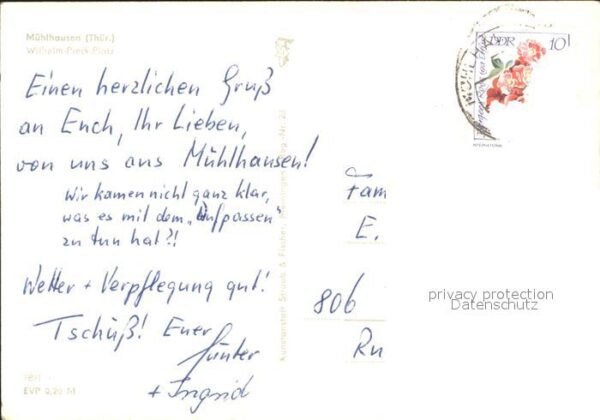 Mühlhausen (Thür.)
Wilhelm-Pieck-Platz
Einen herzlichen Gruß
an Euch, Ihr Lieben,
von uns aus Mühlhausen!
Wir kamen nicht ganz klar,
was es mit dem „Aufpassen"
zu tun hat?!
Wetter + Verpflegung gut!
Tschüß! Euer
Günter
+ Ingrid
EVP 0,20 M
Kunstanstalt Straub & Fischer, Meiningen
DDR 10
MÜHLHA
Fam
E.
806
Ru
privacy protection
Datenschutz